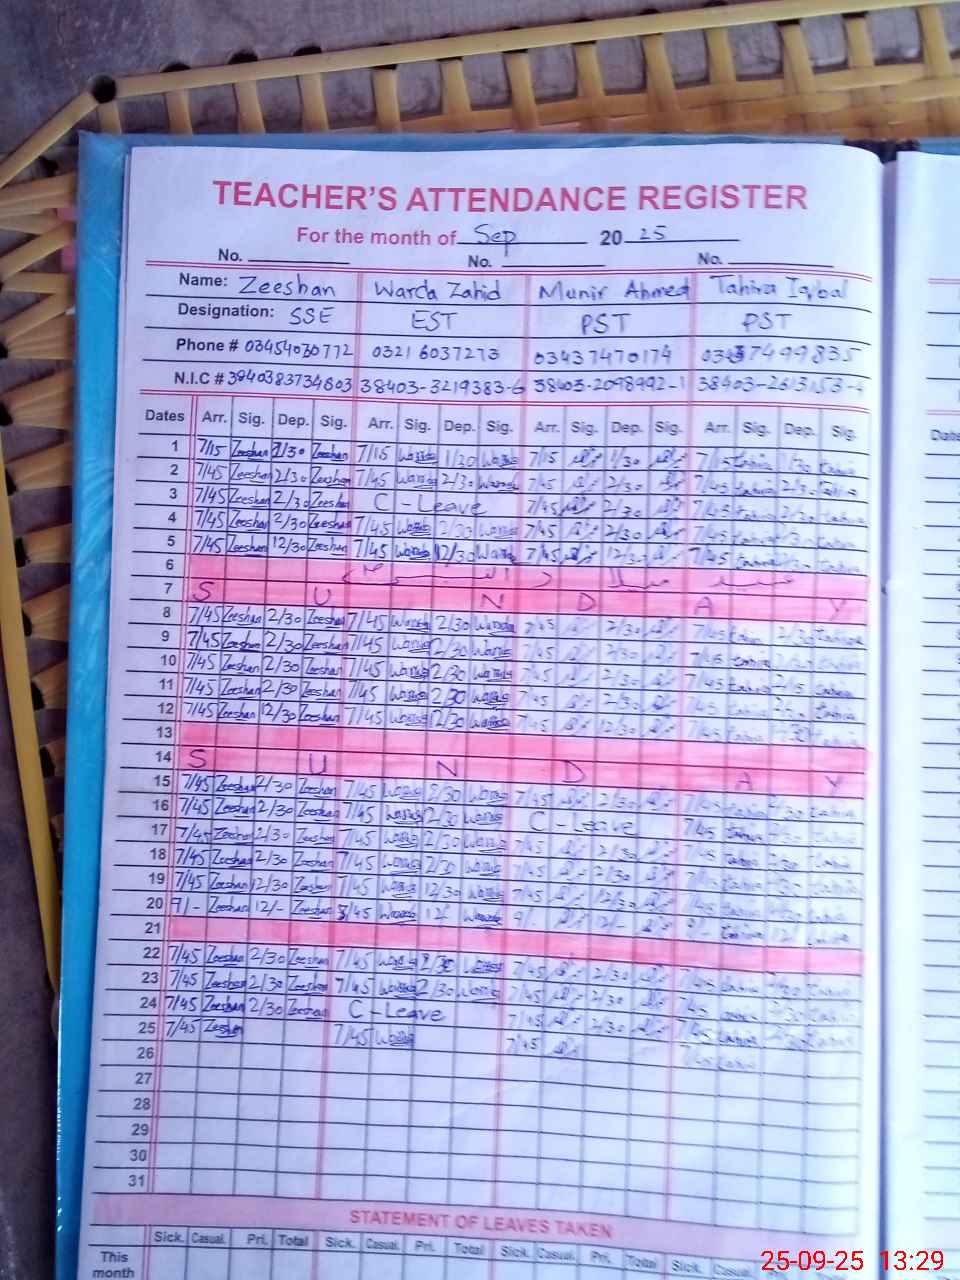 TEACHER'S ATTENDANCE REGISTER
For the month of Sep 20 25
No. No. No.
Name: Zeeshan Warda Zahid Munir Ahmed Tahira Iqbal
Designation: SSE EST PST PST
Phone # 03454030772 0321 6037273 03437470174
N.I.C # 3840383734803 38403-3219383-6 38403-2098992-1
Dates Arr. Sig. Dep. Sig. Arr. Sig. Dep. Sig. Arr. Sig. Dep. Sig. Arr. Sig. Dep. Sig.
1 7/15 Zeeshan 1/30 Zeeshan 7/15 Warda 1/30 Warda 7/15 1/30 7/15 tahira 1/30 tahira
2 7/45 Zeeshan 2/30 Zeeshan 7/45 Warda 2/30 Warda 7/45 2/30 7/45 tahira 2/30 tahira
3 7/45 Zeeshan 2/30 Zeeshan C - Leave 7/45 2/30 7/45 tahira 2/30 tahira
4 7/45 Zeeshan 2/30 Zeeshan 7/45 Warda 2/30 Warda 7/45 2/30 7/45 tahira tahira
5 7/45 Zeeshan 12/30 Zeeshan 7/45 Warda 12/30 Warda 7/45 12/30 7/45 tahira tahira
6
7 S U N D A Y
8 7/45 Zeeshan 2/30 Zeeshan 7/45 Warda 2/30 Warda 7/45 2/30 7/45 tahira 2/30 tahira
9 7/45 Zeeshan 2/30 Zeeshan 7/45 Warda 2/30 Warda 7/45 2/30 7/45 tahira tahira
10 7/45 Zeeshan 2/30 Zeeshan 7/45 Warda 2/30 Warda 7/45 2/30 7/45 tahira tahira
11 7/45 Zeeshan 2/30 Zeeshan 7/45 Warda 2/30 Warda 7/45 2/30 7/45 tahira tahira
12 7/45 Zeeshan 12/30 Zeeshan 7/45 Warda Warda 7/45 12/30 7/45 tahira tahira
13
14 S U N D A Y
15 7/45 Zeeshan 2/30 Zeeshan 7/45 Warda 2/30 Warda 7/45 2/30 7/45 tahira 2/30 tahira
16 7/45 Zeeshan 2/30 Zeeshan 7/45 Warda 2/30 Warda C - Leave 7/45 tahira tahira
17 7/45 Zeeshan 2/30 Zeeshan 7/45 Warda 2/30 Warda 7/45 2/30 7/45 tahira tahira
18 7/45 Zeeshan 2/30 Zeeshan 7/45 Warda 2/30 Warda 7/45 2/30 tahira tahira
19 7/45 Zeeshan 12/30 Zeeshan 7/45 Warda 12/30 Warda 7/45 12/30 7/45 tahira tahira
20 9/- Zeeshan 12/- Zeeshan Warda 12/- Warda 9/- 12/- 9/- tahira tahira
21
22 7/45 Zeeshan 2/30 Zeeshan 7/45 Warda 2/30 Warda 7/45 2/30 7/45 tahira tahira
23 7/45 Zeeshan 2/30 Zeeshan 7/45 Warda 2/30 Warda 7/45 2/30 7/45 tahira
24 7/45 Zeeshan 2/30 Zeeshan C - Leave 7/45 2/30 7/45 tahira tahira
25 7/45 Zeeshan 7/45 Warda 7/45 7/45 tahira
26
27
28
29
30
31
STATEMENT OF LEAVES TAKEN
Sick. Casual. Pri. Total Sick. Casual. Pri. Total Sick. Casual. Pri. Total Sick. Casual.
This month
25-09-25 13:29